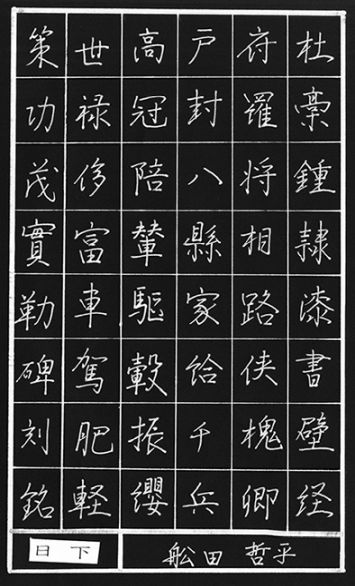 杜稾鍾隷漆書壁経
府羅将相路侠槐卿
戸封八縣家給千兵
高冠陪輦驅轂振纓
世禄侈富車駕肥軽
策功茂實勒碑刻銘
日下
舩田 哲平